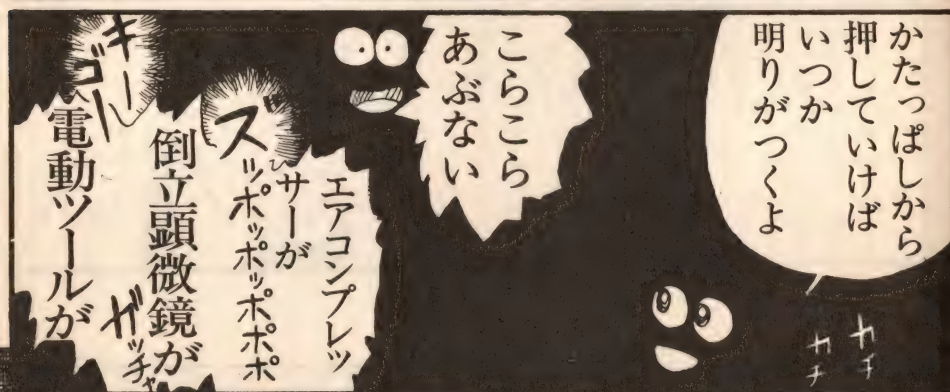 かたっぱしから
押していけば
いつか
明りがつくよ
カチ
カチ
こらこら
あぶない
エアコンプレッ
サーが
ズッポポッポッポポポ
倒立顕微鏡が
ガッチャ
電動ツールが
キーン
ゴー